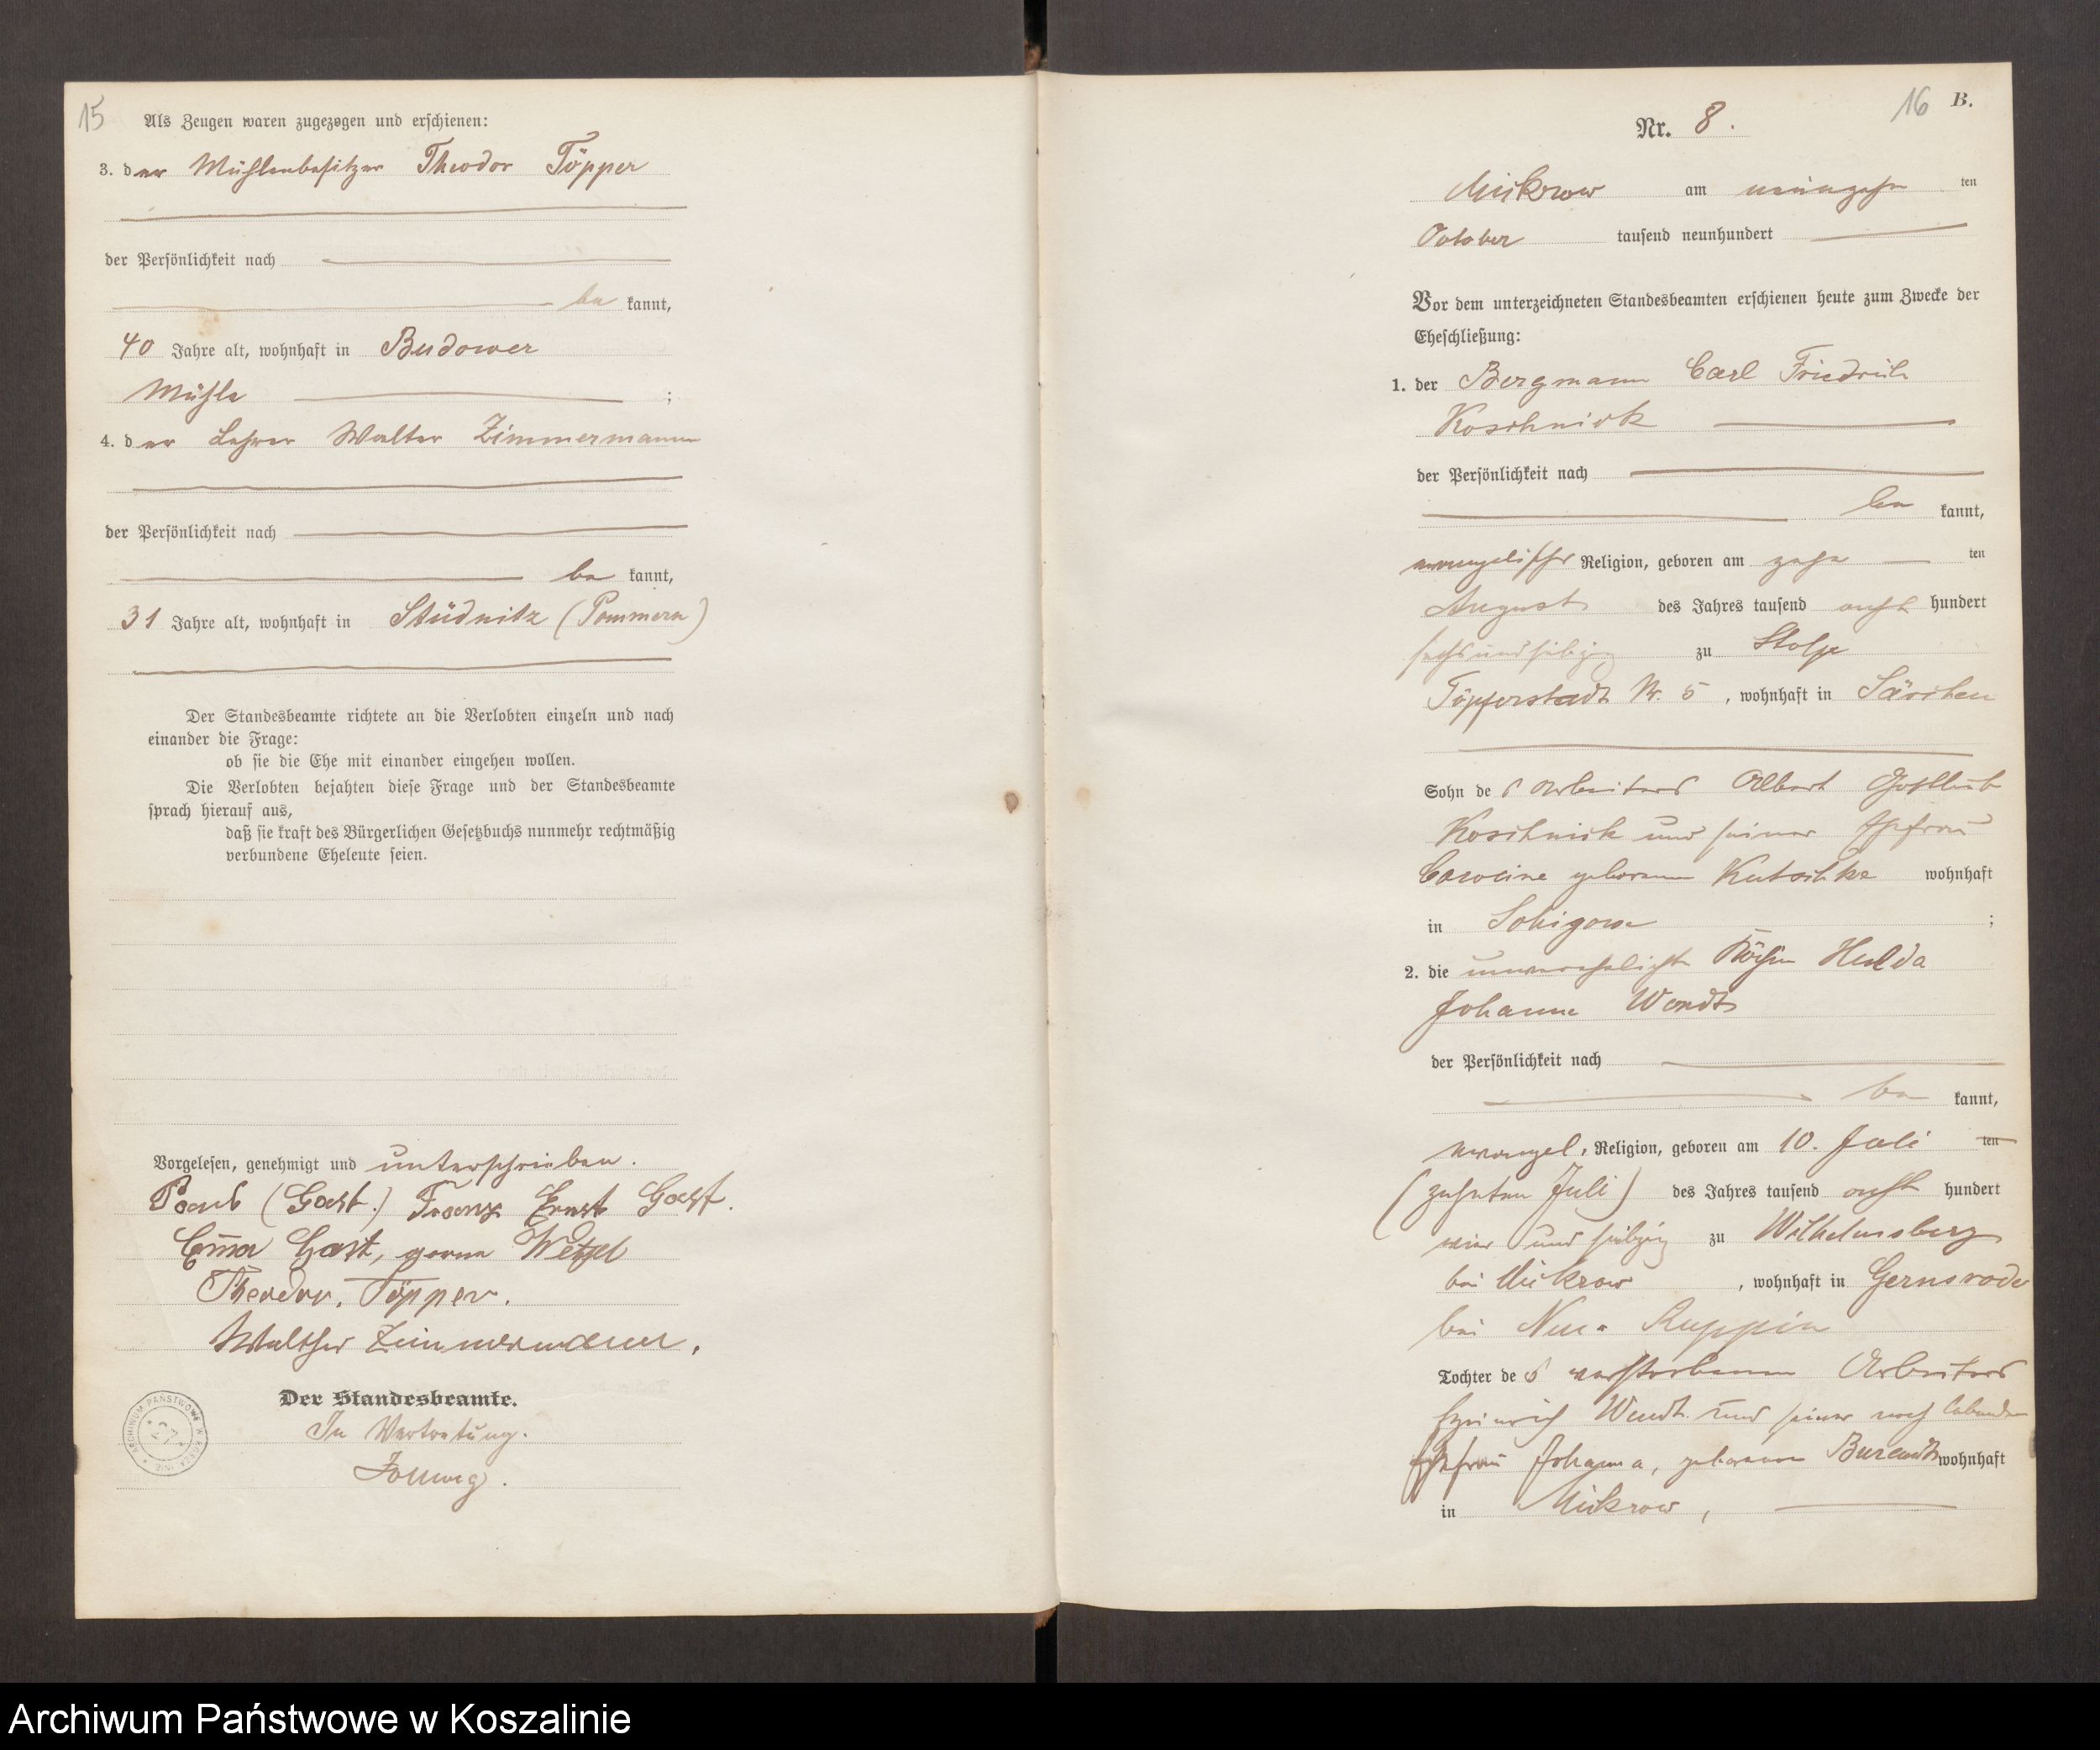 15
Als Zeugen waren zugezogen und erschienen:
3. der Mühlenbesitzer Theodor Töpper
der Persönlichkeit nach
be kannt,
40 Jahre alt, wohnhaft in Budower
Mühle ;
4. der Lehrer Walter Zimmermann
der Persönlichkeit nach
be kannt,
31 Jahre alt, wohnhaft in Stüdnitz (Pommern)
Der Standesbeamte richtete an die Verlobten einzeln und nach
einander die Frage:
ob sie die Ehe mit einander eingehen wollen.
Die Verlobten bejahten diese Frage und der Standesbeamte
sprach hierauf aus,
daß sie kraft des Bürgerlichen Gesetzbuchs nunmehr rechtmäßig
verbundene Eheleute seien.
Vorgelesen, genehmigt und unterschrieben.
(Gast.) Franz Ernst Gast.
Emma Gast, Wetzel
Theodor Töpper.
Walther Zimmermann.
Der Standesbeamte.
In Vertretung.
ARCHIWUM PAŃSTWOWE W KOSZALINIE
16 B.
Nr. 8.
Mickrow am neunzehn ten
October tausend neunhundert
Vor dem unterzeichneten Standesbeamten erschienen heute zum Zwecke der
Eheschließung:
1. der Bergmann Carl Friedrich
Koschnick
der Persönlichkeit nach
be kannt,
evangelischer Religion, geboren am zehn ten
August des Jahres tausend acht hundert
sechsundsiebzig zu Stolp
Töpferstadt Nr. 5, wohnhaft in Särchen
Sohn des Arbeiters Albert Gottlieb
Koschnick und seiner Ehefrau
Caroline geborenen Kutschke wohnhaft
in ;
2. die unverehelichte Köchin Hulda
Johanne Wendt
der Persönlichkeit nach
be kannt,
evangel. Religion, geboren am 10. Juli ten
(zehnten Juli) des Jahres tausend acht hundert
vier und siebzig zu Wilhelmsberg
bei Mickrow, wohnhaft in Gernsrode
bei Neu-Ruppin
Tochter des verstorbenen Arbeiters
Heinrich Wendt und seiner noch lebenden
Ehefrau Johanna, geborenen wohnhaft
in Mickrow,
Archiwum Państwowe w Koszalinie